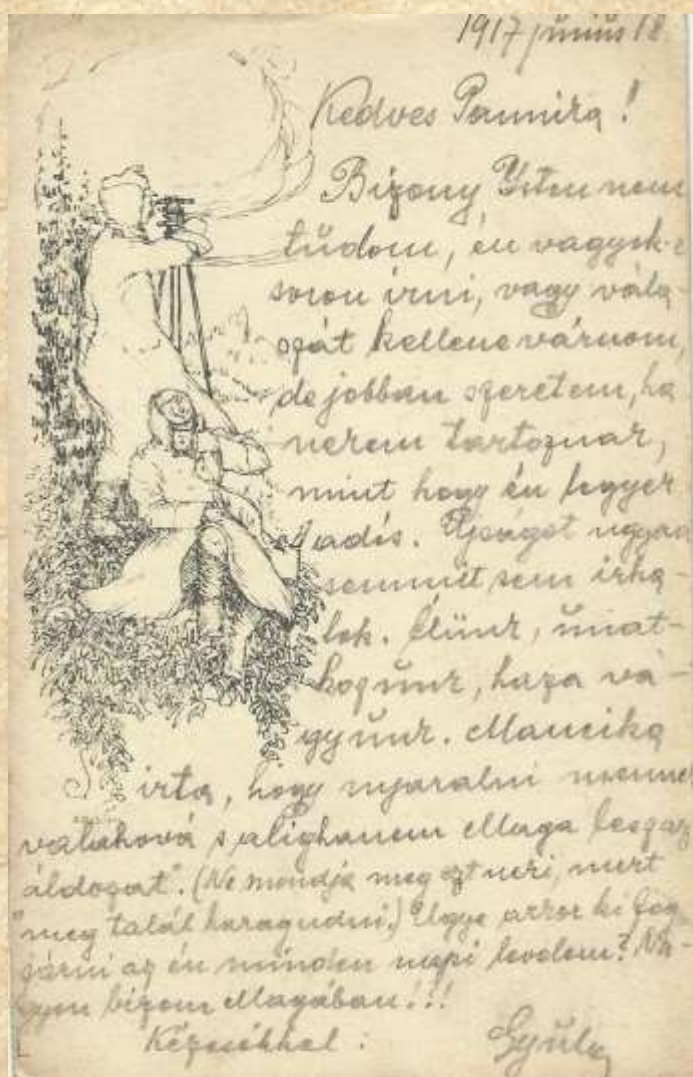 1917 június 18.
Kedves Pannika!
Bizony Isten nem
tudom, én vagyok-e
soron írni, vagy vála-
szát kellene várnom,
de jobban szeretem, ha
nekem tartoznak,
mint hogy én legyek
adós. Ujságot ugyan
semmit sem irha-
tok. Élünk, unat-
kozunk, haza vá-
gyunk. Mancika
irta, hogy nyaralni mennek
valahová s alighanem Maga lesz az
"áldozat". (Ne mondja meg ezt neki, mert
meg talál haragudni.) Ugye akkor ki fog
járni az én minden napi levelem? Na-
gyon bizom Magában!!!
Kézcsókkal:
Gyula